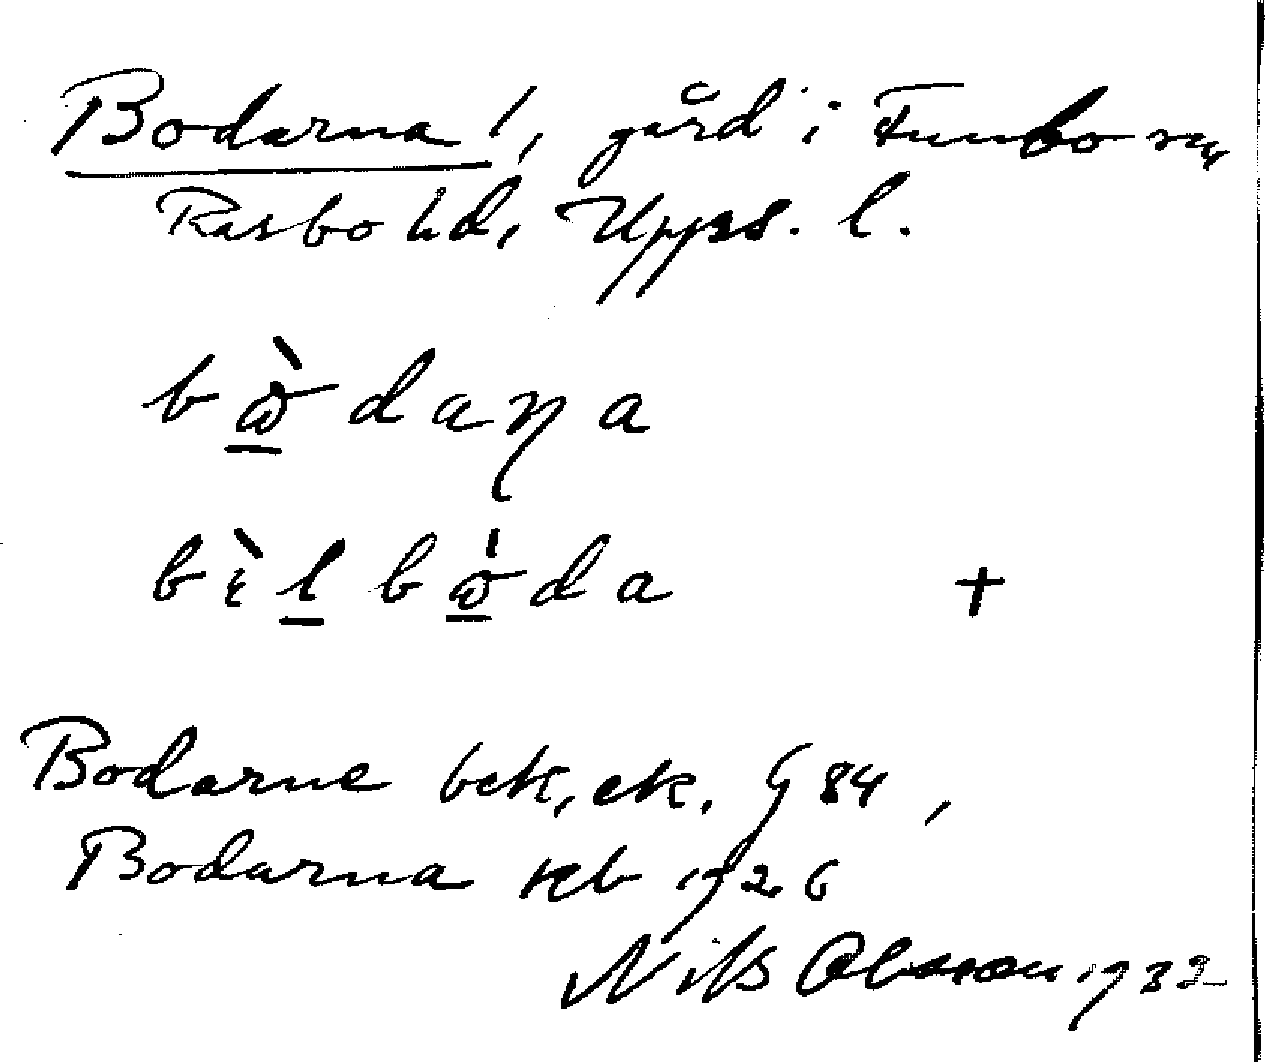 Bodarna 1, gård i Funbo sn,
Rasbo hd, Upps. l.
bὼdaɳa
bὶlbω̍da +
Bodarne bek, ek. G 84,
Bodarna reb 1926
Nils Olsson 1932